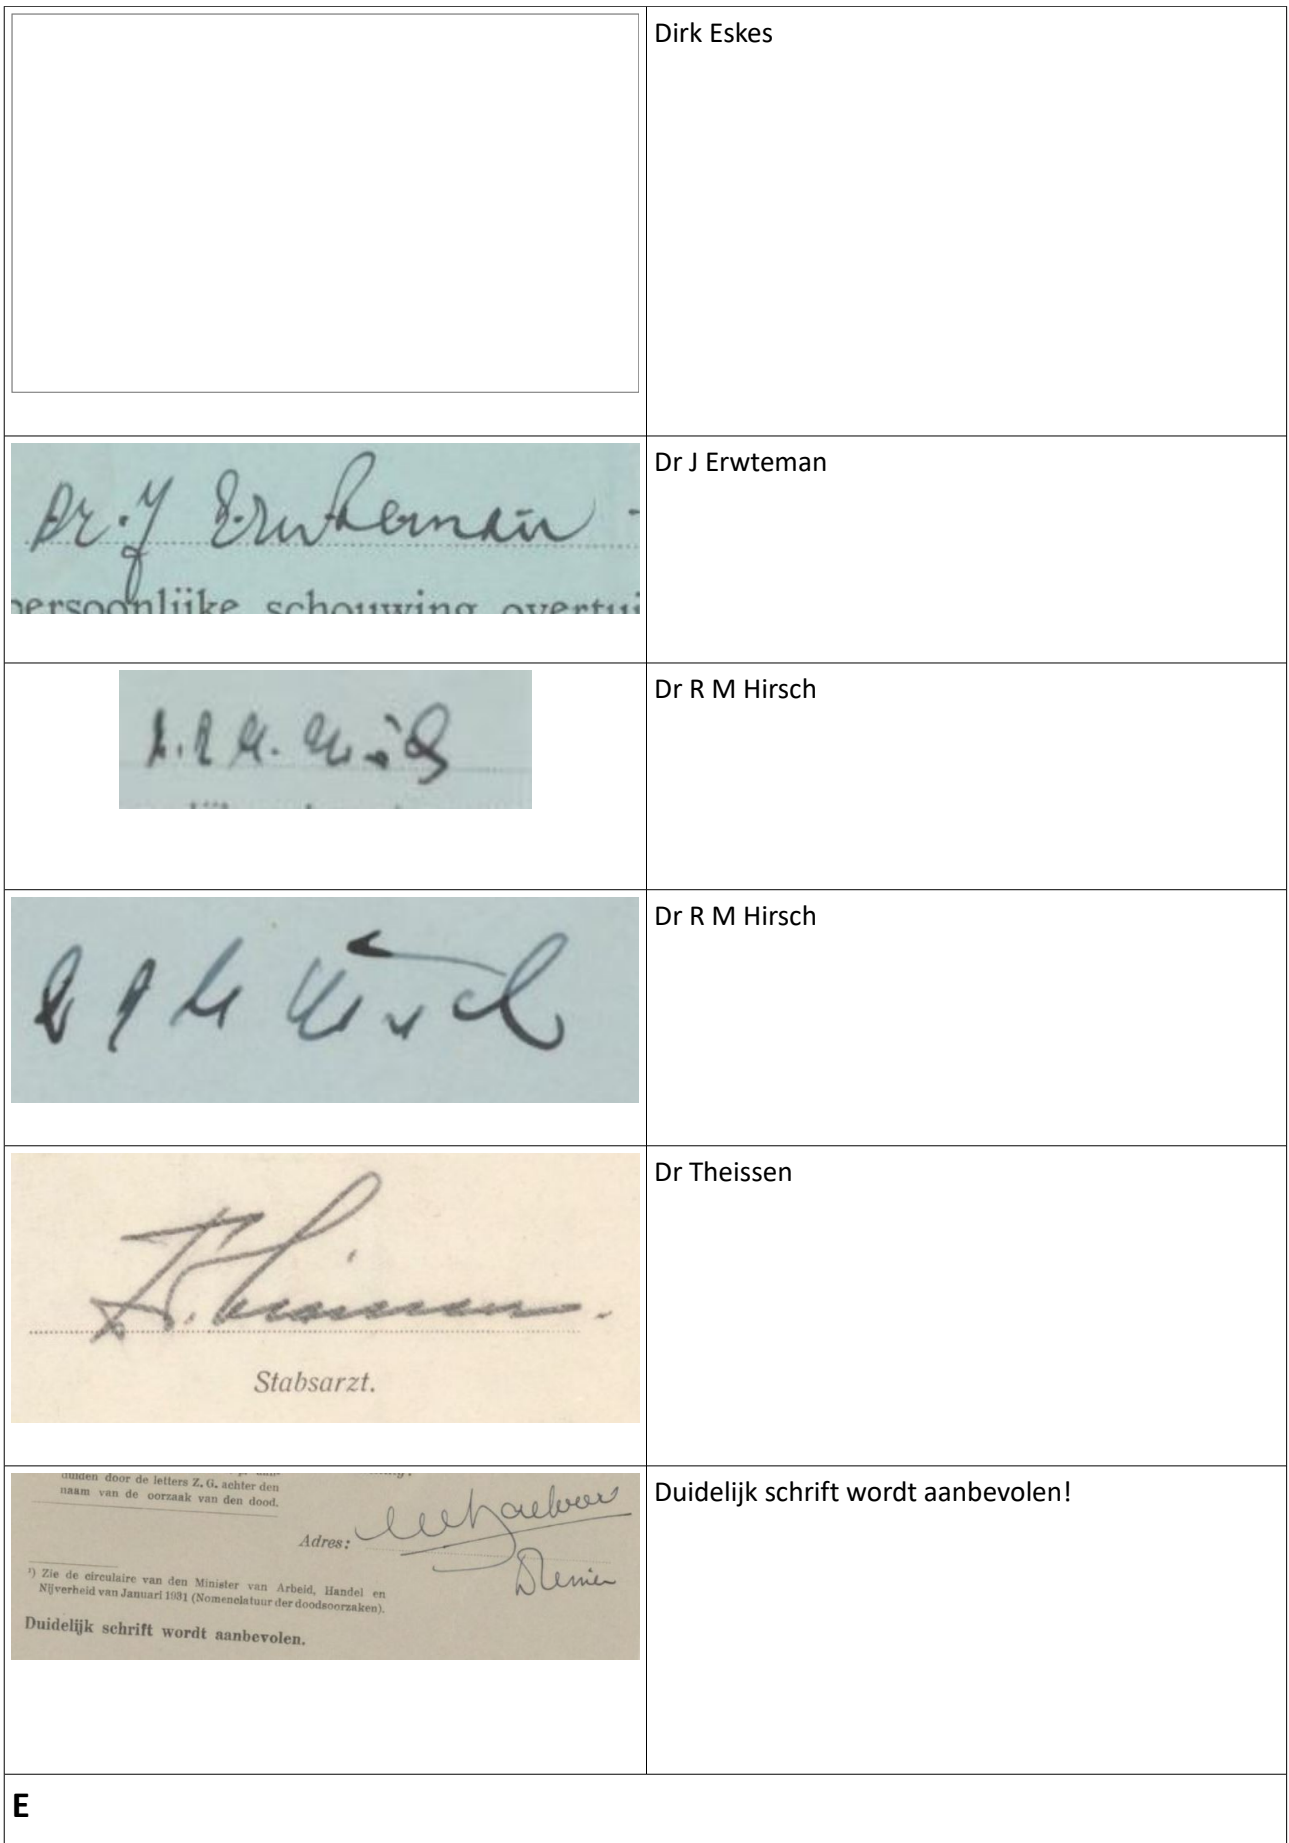 Dirk Eskes
Dr. J Erwteman -
persoonlijke schouwing overtui
Dr J Erwteman
Dr R M Hirsch
Dr R M Hirsch
Dr. Theissen.
Stabsarzt.
Dr Theissen
duiden door de letters Z. G. achter den
naam van de oorzaak van den dood.
Adres:
¹) Zie de circulaire van den Minister van Arbeid, Handel en
Nijverheid van Januari 1931 (Nomenclatuur der doodsoorzaken).
Duidelijk schrift wordt aanbevolen.
Duidelijk schrift wordt aanbevolen!
E